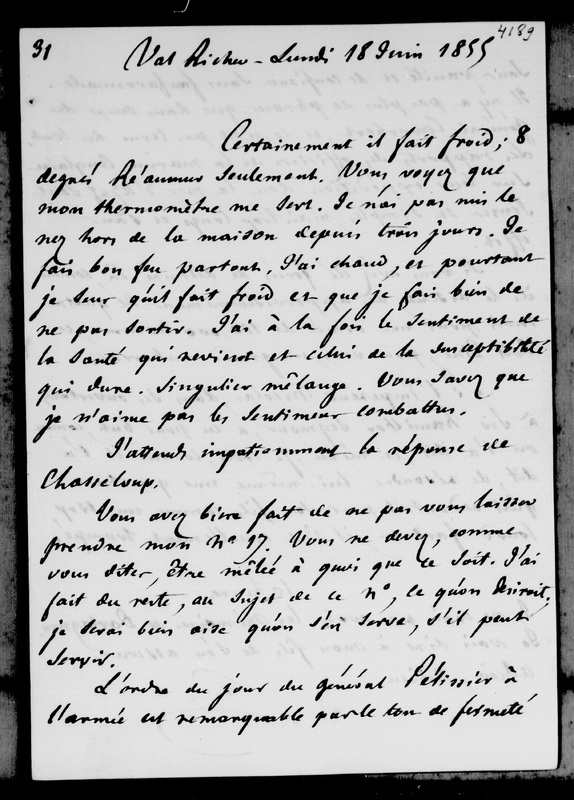 4189
31
Val Richer - Lundi 18 Juin 1855
Certainement il fait froid ; 8
degrés Réaumur seulement. Vous voyez que
mon thermomètre me sert. Je n'ai pas mis le
nez hors de la maison depuis trois jours. Je
fais bon feu partout. J'ai chaud, et pourtant
je sens qu'il fait froid et que je fais bien de
ne pas sortir. J'ai à la fois le sentiment de
la santé qui revient et celui de la susceptibilité
qui dure. Singulier mélange. Vous savez que
je n'aime pas les sentimens combattus.
J'attends impatiemment la réponse de
Chasseloup.
Vous avez bien fait de ne pas vous laisser
prendre mon N° 17. Vous ne devez, comme
vous dites, être mêlée à quoi que ce soit. J'ai
fait du reste, au sujet de ce n°, ce qu'on désiroit ;
je serai bien aise qu'on s'en serve, s'il peut
servir.
L'ordre du jour du général Pélissier à
l'armée est remarquable par le ton de fermeté